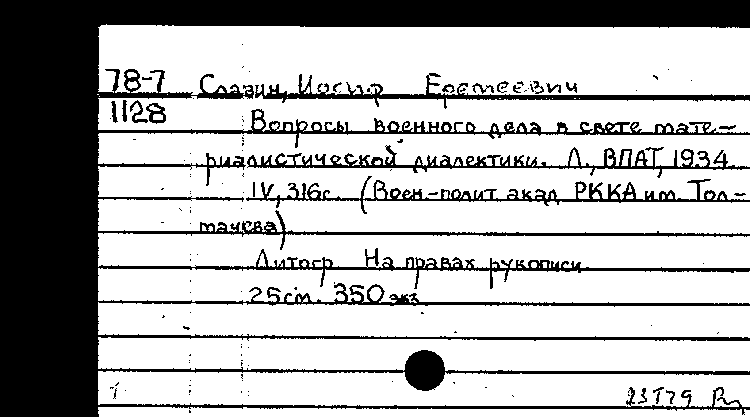 78-7 Славин, Иосиф Еремеевич
1128 Вопросы военного дела в свете мате-
риалистической диалектики. Л., ВПАТ, 1934.
IV, 316с. (Воен-полит акад РККА им. Тол-
мачева)
Литогр На правах рукописи
25см. 350 экз
1
23 I 79